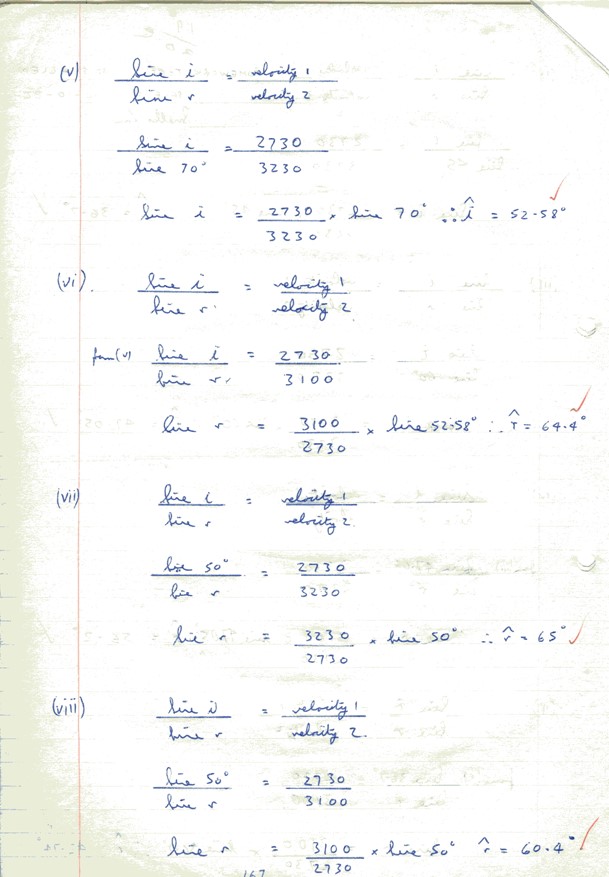 (v) Sine i / Sine r = velocity 1 / velocity 2
Sine i / Sine 70° = 2730 / 3230
Sine i = 2730 / 3230 × Sine 70° ∴ î = 52.58°
(vi). Sine i / Sine r = velocity 1 / velocity 2
from (v) Sine i / Sine r = 2730 / 3100
Sine r = 3100 / 2730 × Sine 52.58° ∴ r̂ = 64.4°
(vii) Sine i / Sine r = velocity 1 / velocity 2.
Sine 50° / Sine r = 2730 / 3230
Sine r = 3230 / 2730 × Sine 50° ∴ r̂ = 65°
(viii) Sine i / Sine r = velocity 1 / velocity 2.
Sine 50° / Sine r = 2730 / 3100
Sine r = 3100 / 2730 × Sine 50° r̂ = 60.4°
167